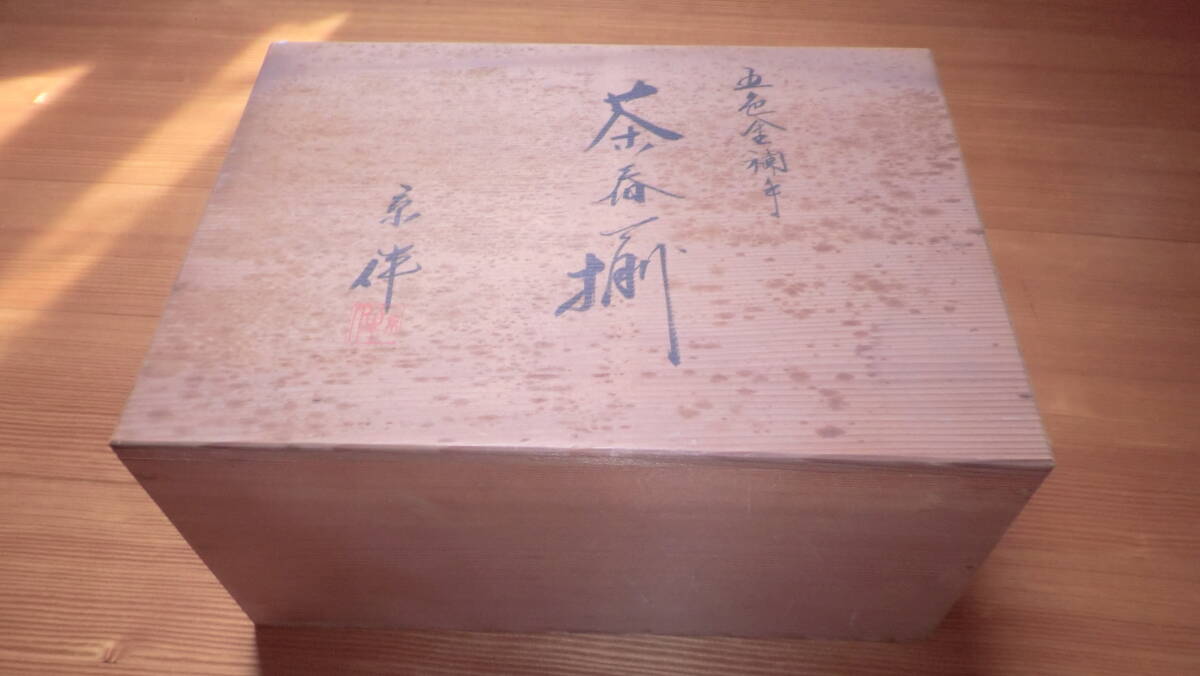 五色金襴手
茶呑揃
京伴